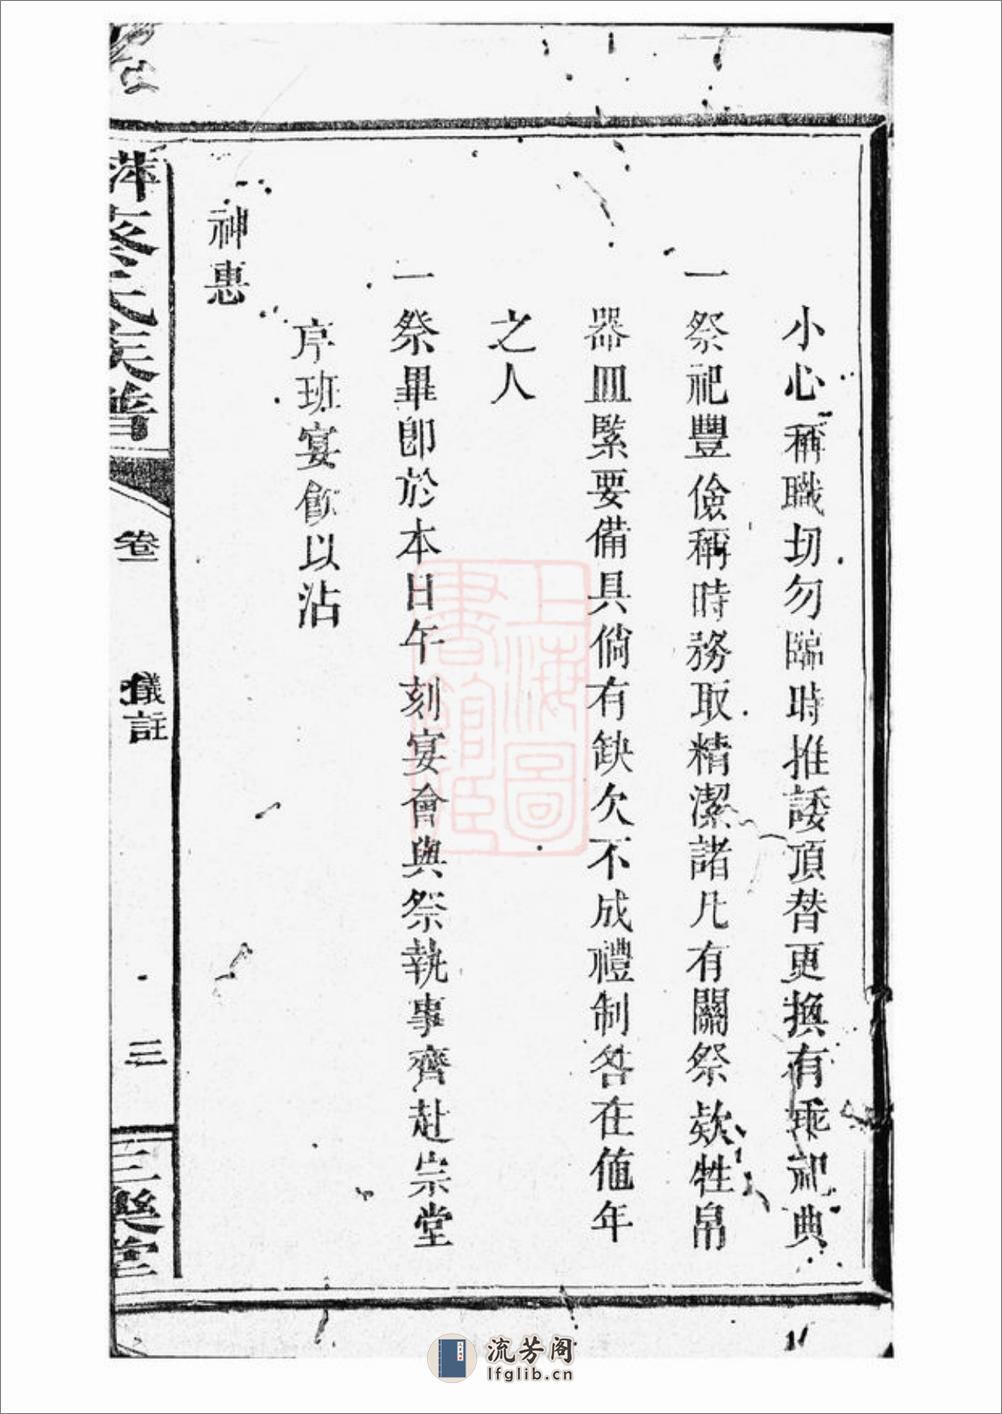 小心稱職切勿臨時推諉頂替更換有乖祀典
一祭祀豐儉稱時務取精潔諸凡有關祭欵牲帛
器皿緊要備具倘有缺欠不成禮制咎在値年
之人
一祭畢卽於本日午刻宴會與祭執事齊赴宗堂
序班宴飮以沾
神惠
萍蔡氏族譜
卷
儀註
三
三樂堂
上海圖
書館藏
流芳阁
lfglib.cn